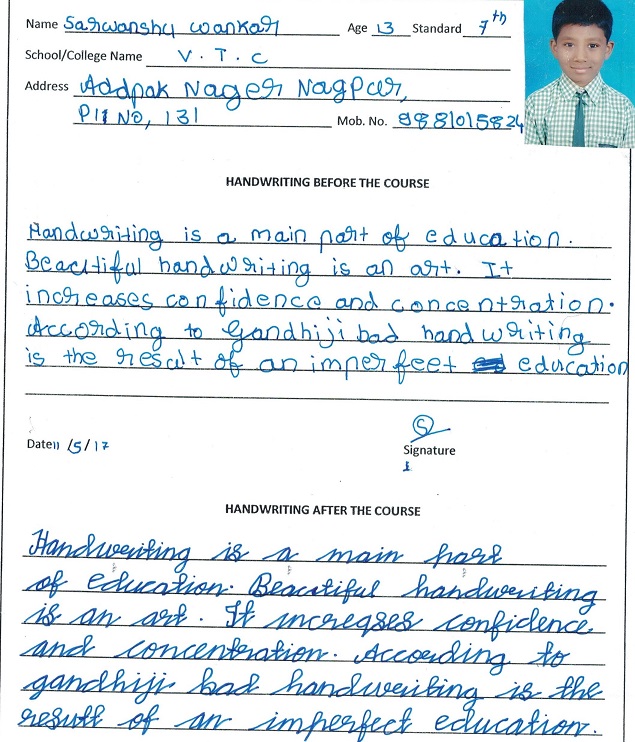 Name Sarwanshu Wankar Age 13 Standard 7th
School/College Name V. T. C
Address Addpak Nager Nagpur,
Plt No, 131 Mob. No. 9881015824
HANDWRITING BEFORE THE COURSE
Handwriting is a main part of education.
Beautiful handwriting is an art. It
increases confidence and concentration.
According to Gandhiji bad handwriting
is the result of an imperfeet education
Date 11/5/17
Signature
HANDWRITING AFTER THE COURSE
Handwriting is a main part
of education. Beautiful handwriting
is an art. It increases confidence
and concentration. According to
gandhiji bad handwriting is the
result of an imperfect education.